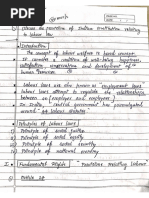 10 mark
PAGE NO.
DATE
1) Discuss the provisions of Indian constitution relating
to labour law.
⇒ Introduction
The concept of labour welfare is a broad concept.
It connotes a condition of well-being, happiness,
satisfaction, conservation and development of
human resources.
Labour laws are also known as employment laws.
Labour laws attempt to regulate the relationship
between an employer and employees.
In India central government has promulgated
around 44 labour statutes.
Principles of labour laws:
1) Principle of social justice
2) Principle of social equity
3) Principle of social security
4) Principle of national economy
I. Fundamental Rights - Provisions relating labour
1) Article 14